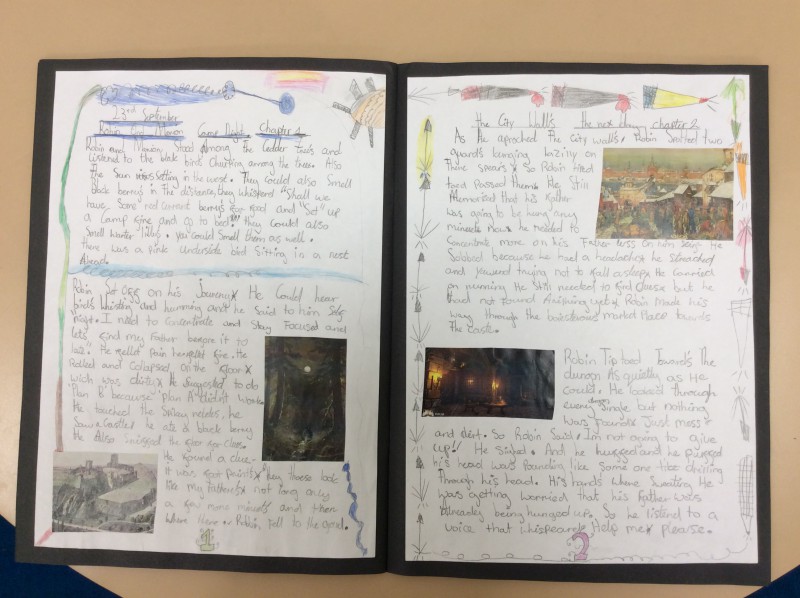 23rd September
Robin and Marion Camp Night Chapter 1
Robin and Marion Stood among the Cedder trees and
Listened to the black birds Chucking among the trees. Also
The Sun was Sitting in the west. They Could also Smell
Black berrys in The distance, they whisperd "Shall we
have Some red Current berrys for food and "Set" up
a Camp fire and go to bed". They Could also
Smell wanter lillys. you Could Smell them as well.
There was a Pink underside bird Sitting in a nest
Ahead.
Robin Set off on his Journey He Could hear
birds whisling and humming and he said to him Self
right. I need to Concentrate and Stay Focused and
lets find my Father before it to
late. He pain He
Rolled and Collapsed on the floor
wich was dirty. He to do
Plan B because plan A didn't work.
He touched the Spikey needles, he
Saw a Castle, he ate a black berry
He Also the for clues.
He found a clue.
It was foot prints they look
like my Fathers not long only
a few more minuets and then
where there. Robin fell to the
1
the City Wall's the next day chapter 2
As He aproched The City walls, Robin Spotted two
guards leaning lazilly on
There spears So Robin tired
tired Passed them. He Stin
Memorised that his father
was going to be hung any
minete Now he needed to
Concentrate more on his Father less on him self. He
Sobbed because he had a headache he streached
and yawned trying not to fall a sleep. He Carried
on running He Still needed to find Clause but he
Had not found Anything yet. Robin Made his
way through the boisterous market Place towards
The Castle.
Robin Tip toed Towards The
dungon As quietly as He
Could. He looked Through
every Single dungon but nothing
was founde Just mess
and dirt. So Robin Said, Im not going to give
up!! He Sighed. And he huffed and he puffed
his head was Pounding like Some one like drilling
Through his head. His hands where Sweating He
was getting worried that his Father was
Already being hunged up. So he listend to a
voice that whispeard Help me please.
2